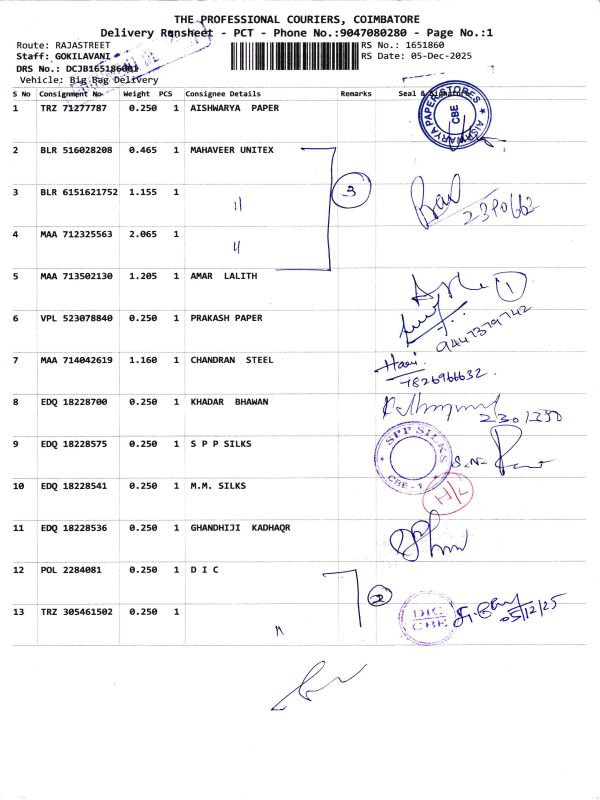 THE PROFESSIONAL COURIERS, COIMBATORE
Delivery Runsheet - PCT - Phone No.:9047080280 - Page No.:1
Route: RAJASTREET
RS No.: 1651860
Staff: GOKILAVANI
RS Date: 05-Dec-2025
DRS No.: DCJB165186001
Vehicle: Big Bag Delivery
S No Consignment No Weight PCS Consignee Details Remarks Seal & Signature
1 TRZ 71277787 0.250 1 AISHWARYA PAPER
AISHWARYA PAPER STORES CBE
2 BLR 516028208 0.465 1 MAHAVEER UNITEX
3 BLR 6151621752 1.155 1 〃 3
2390662
4 MAA 712325563 2.065 1 〃
5 MAA 713502130 1.205 1 AMAR LALITH
1
6 VPL 523078840 0.250 1 PRAKASH PAPER
9447379742
7 MAA 714042619 1.160 1 CHANDRAN STEEL
Hari
7826966632.
8 EDQ 18228700 0.250 1 KHADAR BHAWAN
2301350
9 EDQ 18228575 0.250 1 S P P SILKS
SPP SILKS CBE-1
10 EDQ 18228541 0.250 1 M.M. SILKS
11 EDQ 18228536 0.250 1 GHANDHIJI KADHAQR
12 POL 2284081 0.250 1 D I C
2
13 TRZ 305461502 0.250 1 〃
DIC
CBE
05/12/25